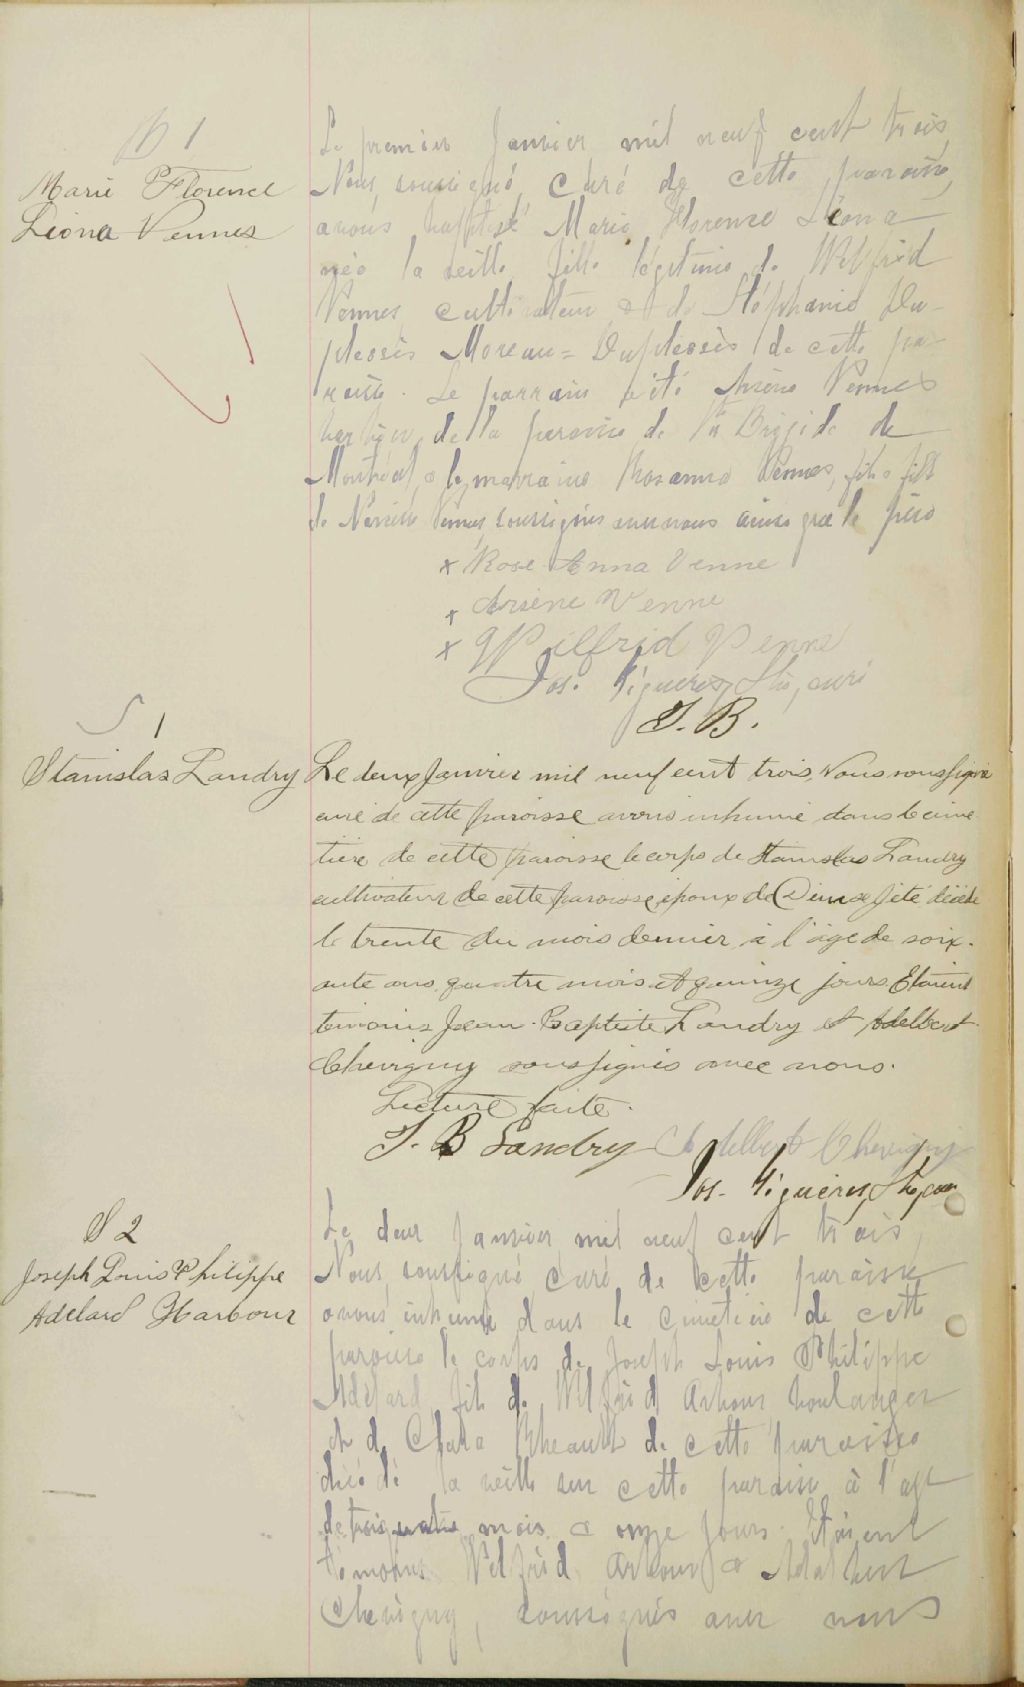 B 1
Marie Florence
Léona Vennes
Le premier Janvier mil neuf cent trois
Nous, soussigné, curé de cette paroisse,
avons baptisé Marie Florence Léona
née la veille, fille légitime de Wilfrid
Vennes cultivateur et de Stéphanie Du-
plessis Moreau=Duplessis de cette pa-
roisse. Le parrain a été Arsène Vennes
de la paroisse de Ste Brigide de
Montréal, & la marraine Rosanna Vennes, fille
de Vennes, soussignés avec nous ainsi que le père
x Rose Anna Venne
x Arsène Venne
x Wilfrid Venne
Jos. Ptre, curé
J. B.
S 1
Stanislas Landry
Le deux Janvier mil neuf cent trois, Nous soussigné
curé de cette paroisse avons inhumé dans le cime
tière de cette paroisse le corps de Stanislas Landry
cultivateur de cette paroisse, époux de décédé
le trente du mois dernier à l'âge de soix-
ante ans, quatre mois et quinze jours. Etaient
témoins Jean-Baptiste Landry et Adelbert
Chevigny soussignés avec nous.
Lecture faite.
J. B Landry Adelbert Chevigny
Jos. Ptre, curé
S 2
Joseph Louis Philippe
Adelard Harbour
Le deux Janvier mil neuf cent trois,
Nous, soussigné, curé de cette paroisse
avons inhumé dans le cimetière de cette
paroisse le corps de Joseph Louis Philippe
Adélard fils de Wilfrid Arbour boulanger
et de Clara Rheault de cette paroisse
décédé la veille sur cette paroisse à l'age
de mois & onze jours. Etaient
témoins Wilfrid Arbour & Adelbert
Chevigny, soussignés avec nous